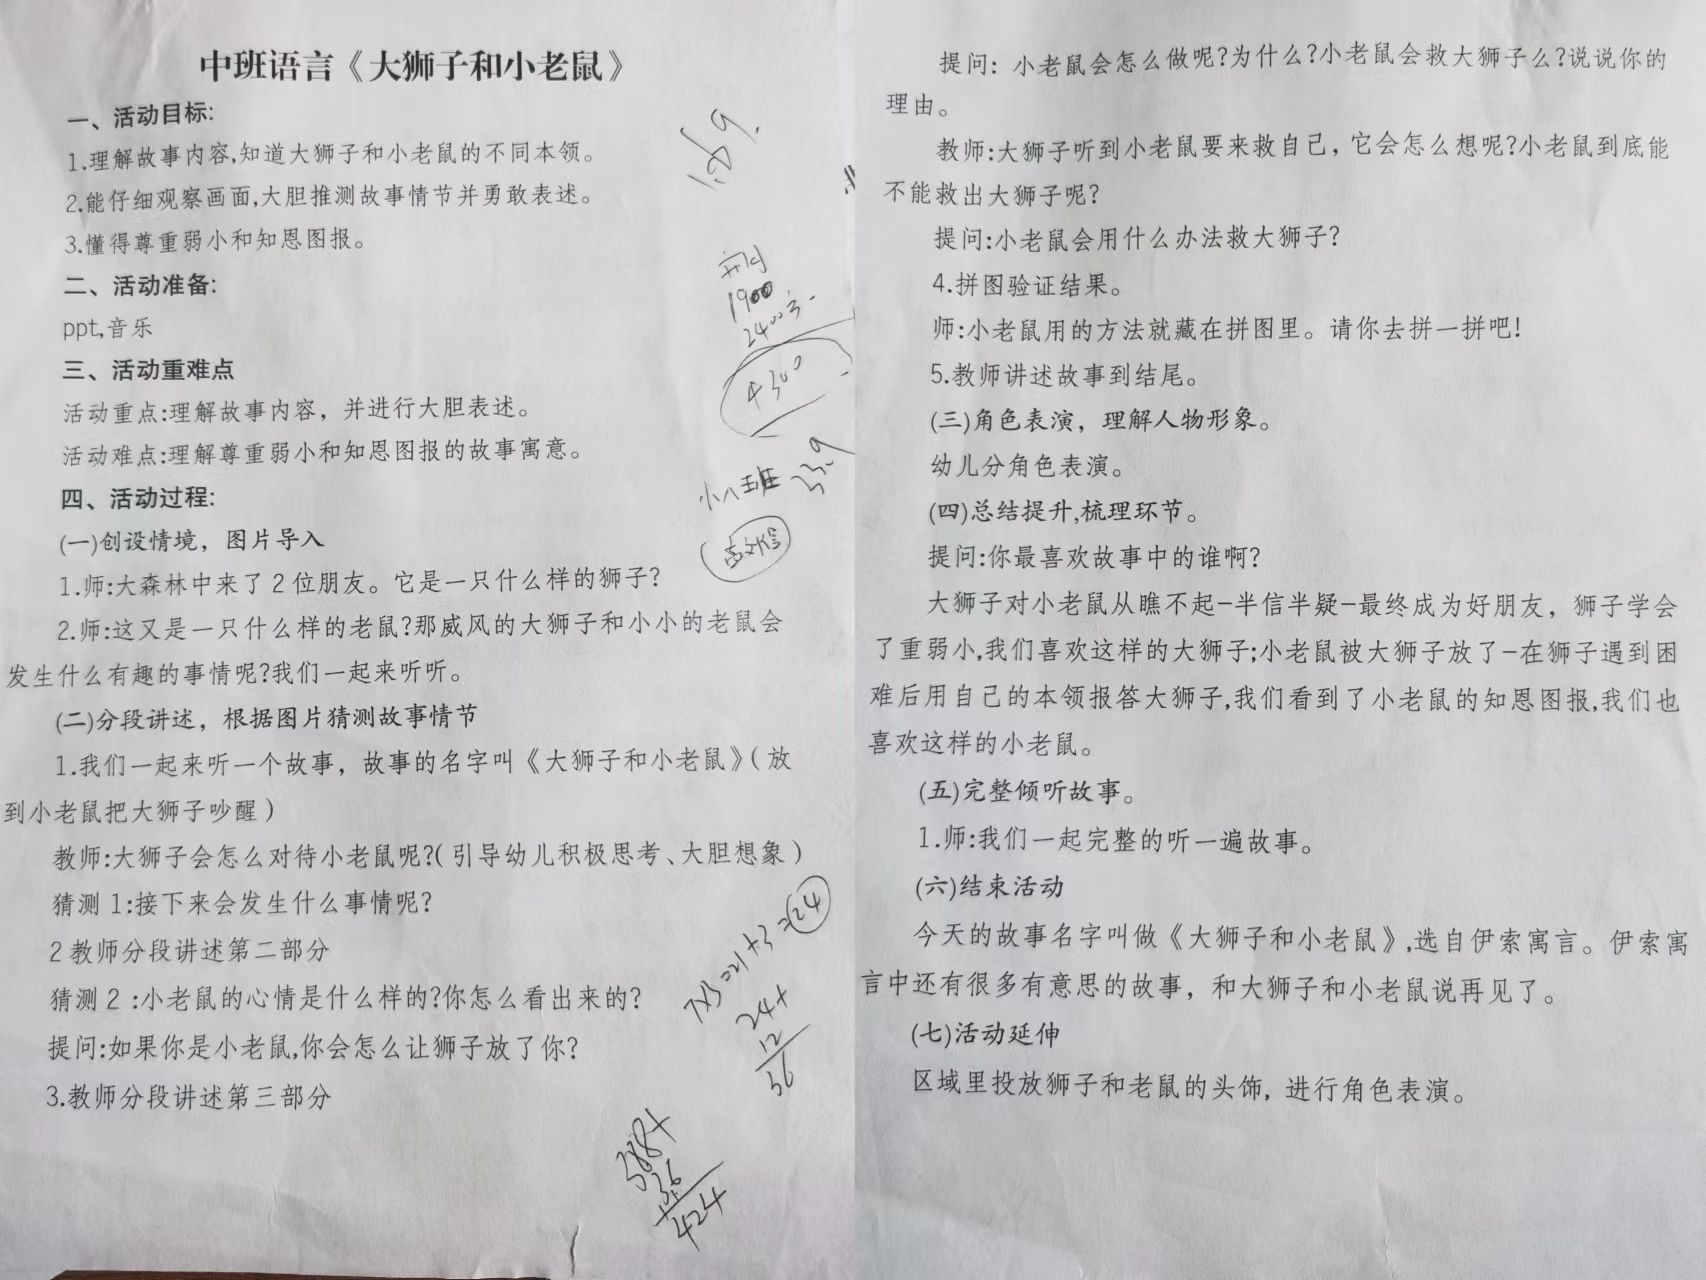 中班语言《大狮子和小老鼠》
一、活动目标:
1.理解故事内容,知道大狮子和小老鼠的不同本领。
2.能仔细观察画面,大胆推测故事情节并勇敢表述。
3.懂得尊重弱小和知恩图报。
二、活动准备:
ppt,音乐
三、活动重难点
活动重点:理解故事内容，并进行大胆表述。
活动难点:理解尊重弱小和知恩图报的故事寓意。
四、活动过程:
(一)创设情境，图片导入
1.师:大森林中来了2位朋友。它是一只什么样的狮子?
2.师:这又是一只什么样的老鼠?那威风的大狮子和小小的老鼠会
发生什么有趣的事情呢?我们一起来听听。
(二)分段讲述，根据图片猜测故事情节
1.我们一起来听一个故事，故事的名字叫《大狮子和小老鼠》(放
到小老鼠把大狮子吵醒)
教师:大狮子会怎么对待小老鼠呢?(引导幼儿积极思考、大胆想象)
猜测1:接下来会发生什么事情呢?
2教师分段讲述第二部分
猜测2:小老鼠的心情是什么样的?你怎么看出来的?
提问:如果你是小老鼠,你会怎么让狮子放了你?
3.教师分段讲述第三部分
1900
2400
4300
小八班
339
7×3=21+3=24
24+
12
36
388+
36
424
提问: 小老鼠会怎么做呢?为什么?小老鼠会救大狮子么?说说你的
理由。
教师:大狮子听到小老鼠要来救自己，它会怎么想呢?小老鼠到底能
不能救出大狮子呢?
提问:小老鼠会用什么办法救大狮子?
4.拼图验证结果。
师:小老鼠用的方法就藏在拼图里。请你去拼一拼吧!
5.教师讲述故事到结尾。
(三)角色表演，理解人物形象。
幼儿分角色表演。
(四)总结提升,梳理环节。
提问:你最喜欢故事中的谁啊?
大狮子对小老鼠从瞧不起-半信半疑-最终成为好朋友，狮子学会
了重弱小,我们喜欢这样的大狮子;小老鼠被大狮子放了-在狮子遇到困
难后用自己的本领报答大狮子,我们看到了小老鼠的知恩图报,我们也
喜欢这样的小老鼠。
(五)完整倾听故事。
1.师:我们一起完整的听一遍故事。
(六)结束活动
今天的故事名字叫做《大狮子和小老鼠》,选自伊索寓言。伊索寓
言中还有很多有意思的故事，和大狮子和小老鼠说再见了。
(七)活动延伸
区域里投放狮子和老鼠的头饰，进行角色表演。